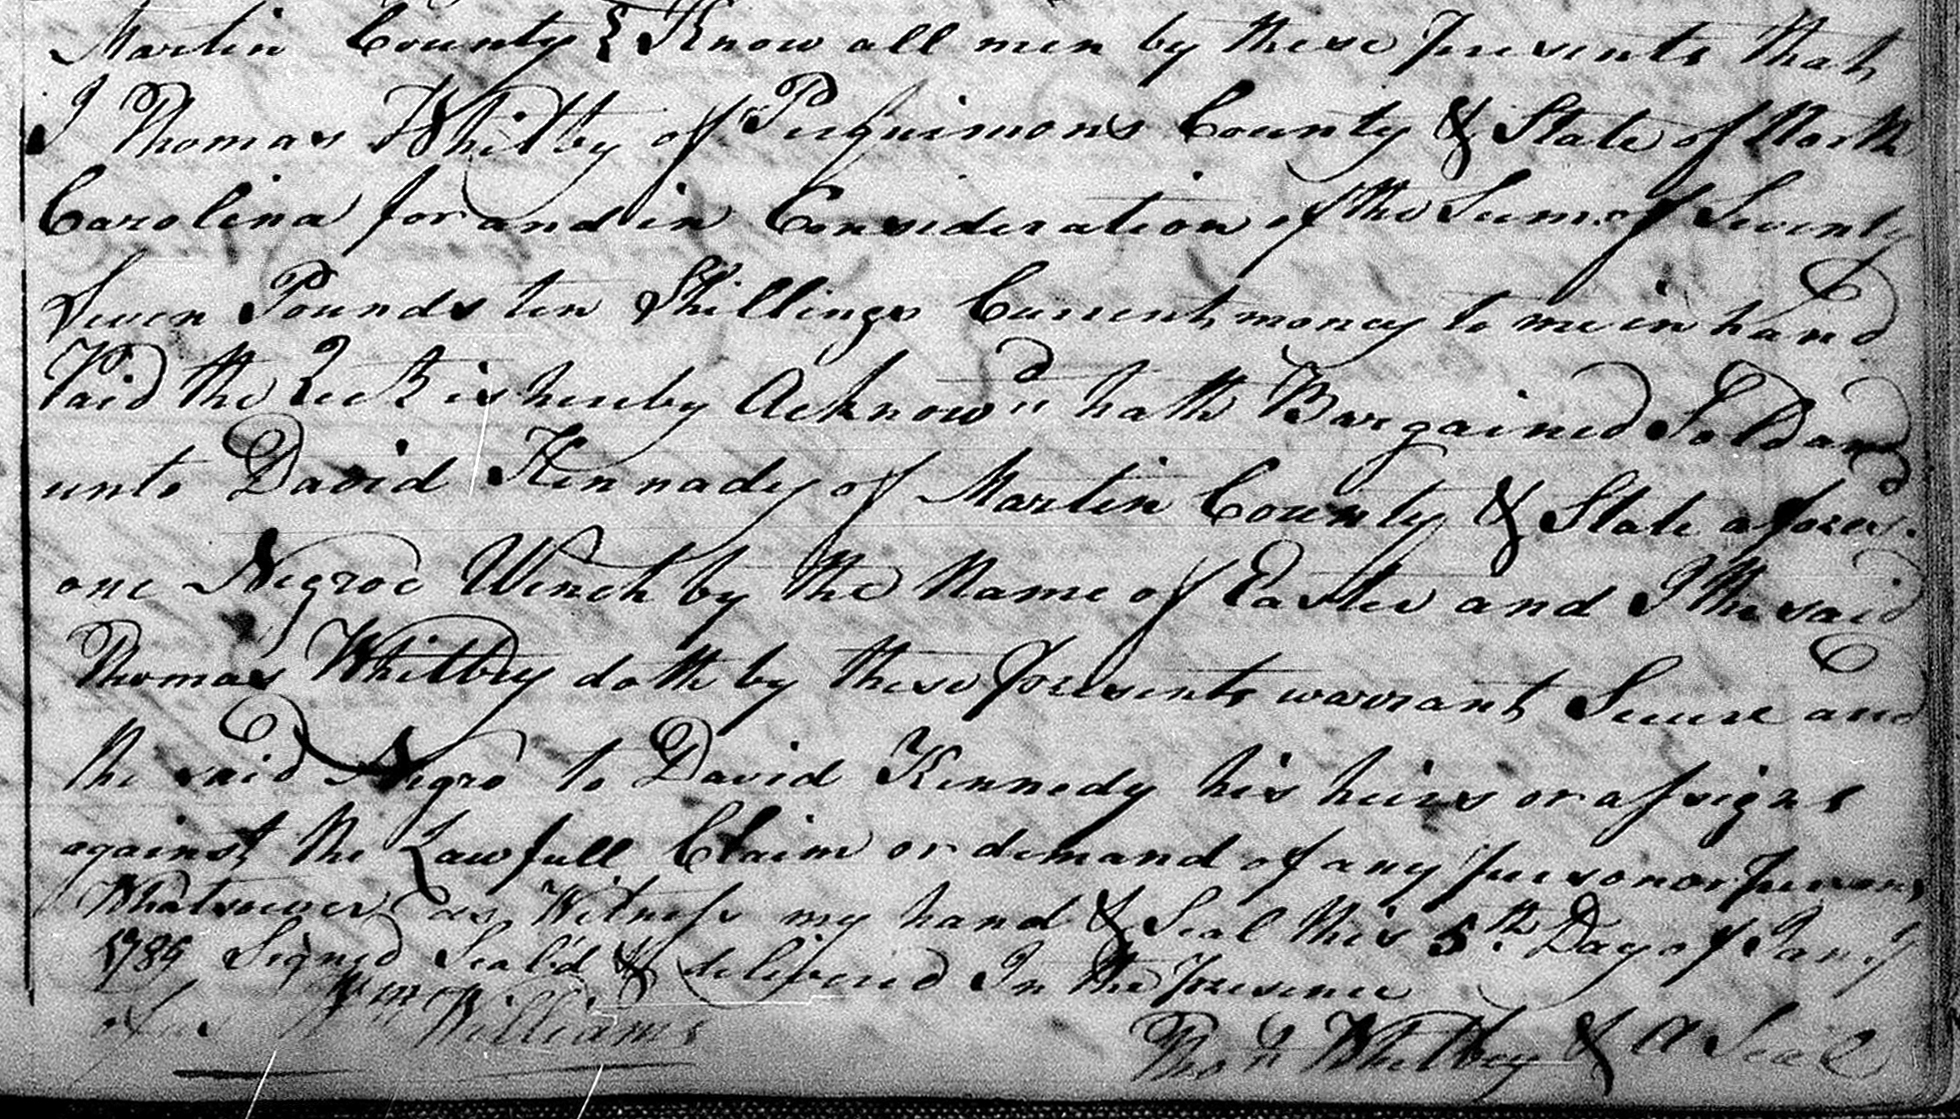 Martin County { Know all men by these presents that
I Thomas Whitby of Perquimons County & State of North
Carolina for and in Consideration of the Sum of Seventy
Seven Pounds ten Shillings Current money to me in hand
Paid the Rect is hereby Acknowd hath Bargained Sold and
unto David Kennady of Martin County & State afores.d
one Negroe Wench by the Name of Easter and I the said
Thomas Whitbey doth by these presents warrant Secure and
the said Negro to David Kennedy his heirs or assigns
against the Lawfull Claim or demand of any person or persons
Whatsoever as Witness my hand & Seal this 5th Day of Jany
1789 Signed Seal'd & delivered In the presence
of us Wm Williams
Thos Whitbey & A Seal